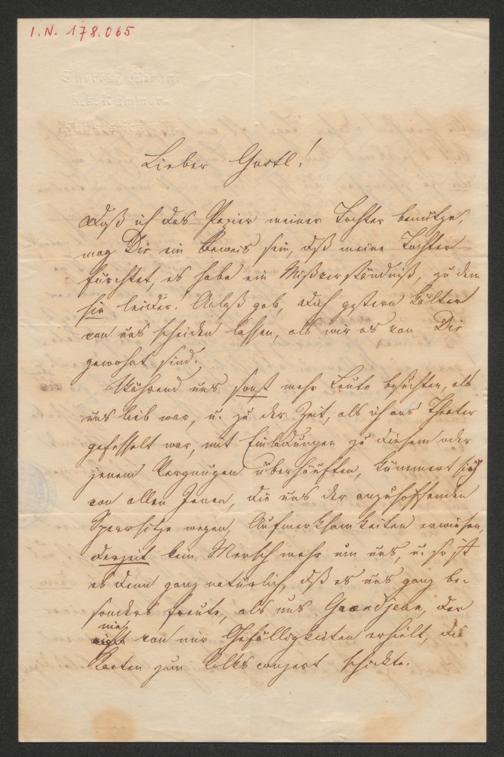 I.N. 178.065
Lieber Gustl!
Daß ich das Papier meiner Tochter benütze,
mag Dir ein Beweis sein, daß meine Tochter
fürchtet, es habe ein Mißverständniß, zu dem
sie leider! Anlaß gab, Dich gestern kälter
von uns scheiden lassen, als wir es von Dir
gewohnt sind.
Während uns sonst mehr Leute besuchten, als
uns lieb war, u. zu der Zeit, als ich ans Theater
gefesselt war, mit Einladungen zu diesem oder
jenem Vergnügen überhäuften, kümmert sich
von allen Jenen, die uns der anzuhoffenden
Sperrsitze wegen, Aufmerksamkeiten erwiesen,
derzeit kein Mensch mehr um uns, u. so ist
es denn ganz natürlich, daß es uns ganz be-
sonders freute, als uns Grandjean, der
nie von mir Gefälligkeiten erhielt, die
Karten zum Volksconzert schickte.